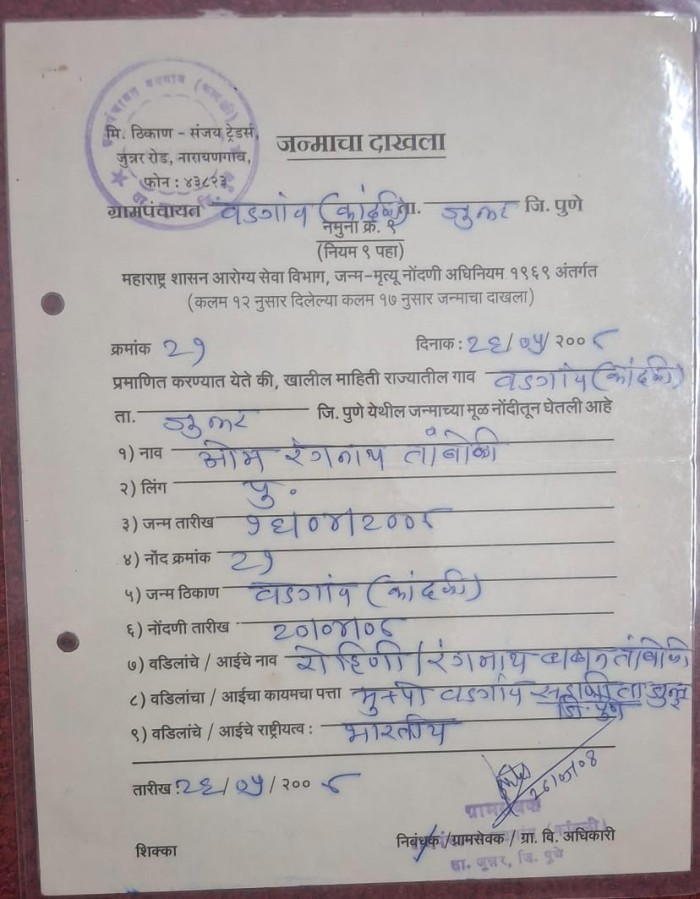 मि. ठिकाण - संजय ट्रेडर्स,
जुन्नर रोड, नारायणगाव,
फोन : ४३८२३
जन्माचा दाखला
ग्रामपंचायत वडगांव (कांदळी) ता. जुन्नर जि. पुणे
नमुना क्र. ९
(नियम ९ पहा)
महाराष्ट्र शासन आरोग्य सेवा विभाग, जन्म-मृत्यू नोंदणी अधिनियम १९६९ अंतर्गत
(कलम १२ नुसार दिलेल्या कलम १७ नुसार जन्माचा दाखला)
क्रमांक 21
दिनाक : 26/05/२००
प्रमाणित करण्यात येते की, खालील माहिती राज्यातील गाव वडगांव (कांदळी)
ता. जुन्नर जि. पुणे येथील जन्माच्या मूळ नोंदीतून घेतली आहे
१) नाव ओम रंगनाथ तांबोळी
२) लिंग पु.
३) जन्म तारीख
४) नोंद क्रमांक 21
५) जन्म ठिकाण वडगांव (कांदळी)
६) नोंदणी तारीख
७) वडिलांचे / आईचे नाव रोहिणी / रंगनाथ बबन तांबोळी
८) वडिलांचा / आईचा कायमचा पत्ता मु+पो वडगांव ता जुन्नर
जि. पुणे
९) वडिलांचे / आईचे राष्ट्रीयत्व : भारतीय
तारीख : 26/05/२००
ग्रामसेवक
शिक्का
निबंधक/ग्रामसेवक / ग्रा. वि. अधिकारी
ता. जुन्नर, जि. पुणे